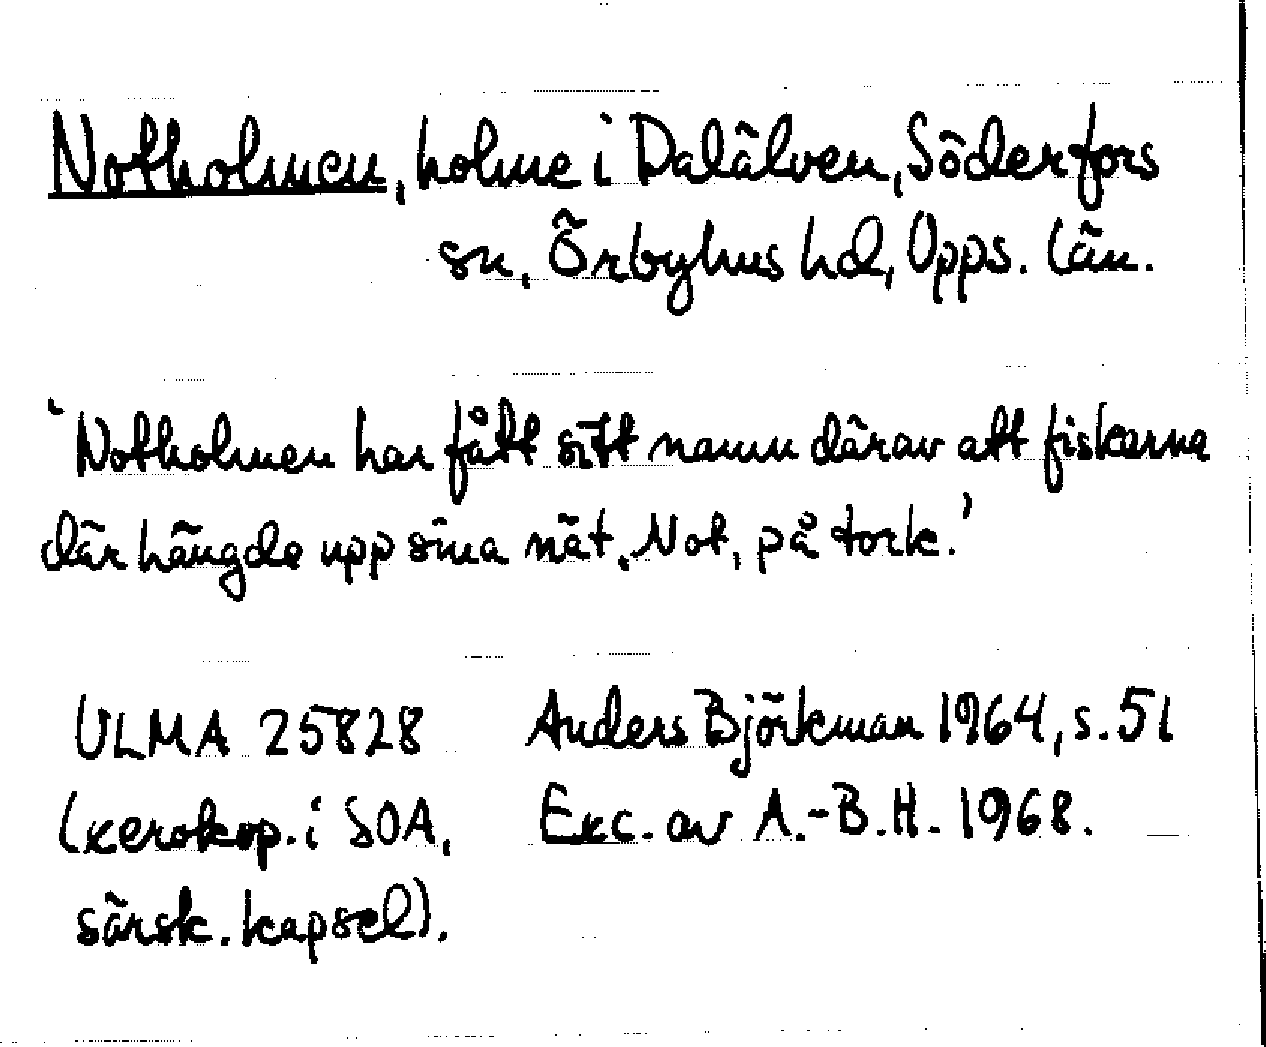 Notholmen, holme i Dalälven, Söderfors
sn, Örbyhus hd, Upps. län.
'Notholmen har fått sitt namn därav att fiskarna
där hängde upp sina nät. Not, på tork.'
ULMA 25828 Anders Björkman 1964, s. 51
(xerokop. i SOA, Exc. av A.-B.H. 1968.
särsk. kapsel).